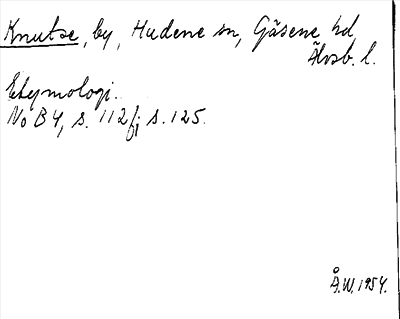 Knutse, by, Hudene sn, Gäsene hd,
Älvsb. l.
Etymologi.
NoB 4, s. 112f; s. 125.
Å.W. 1954.